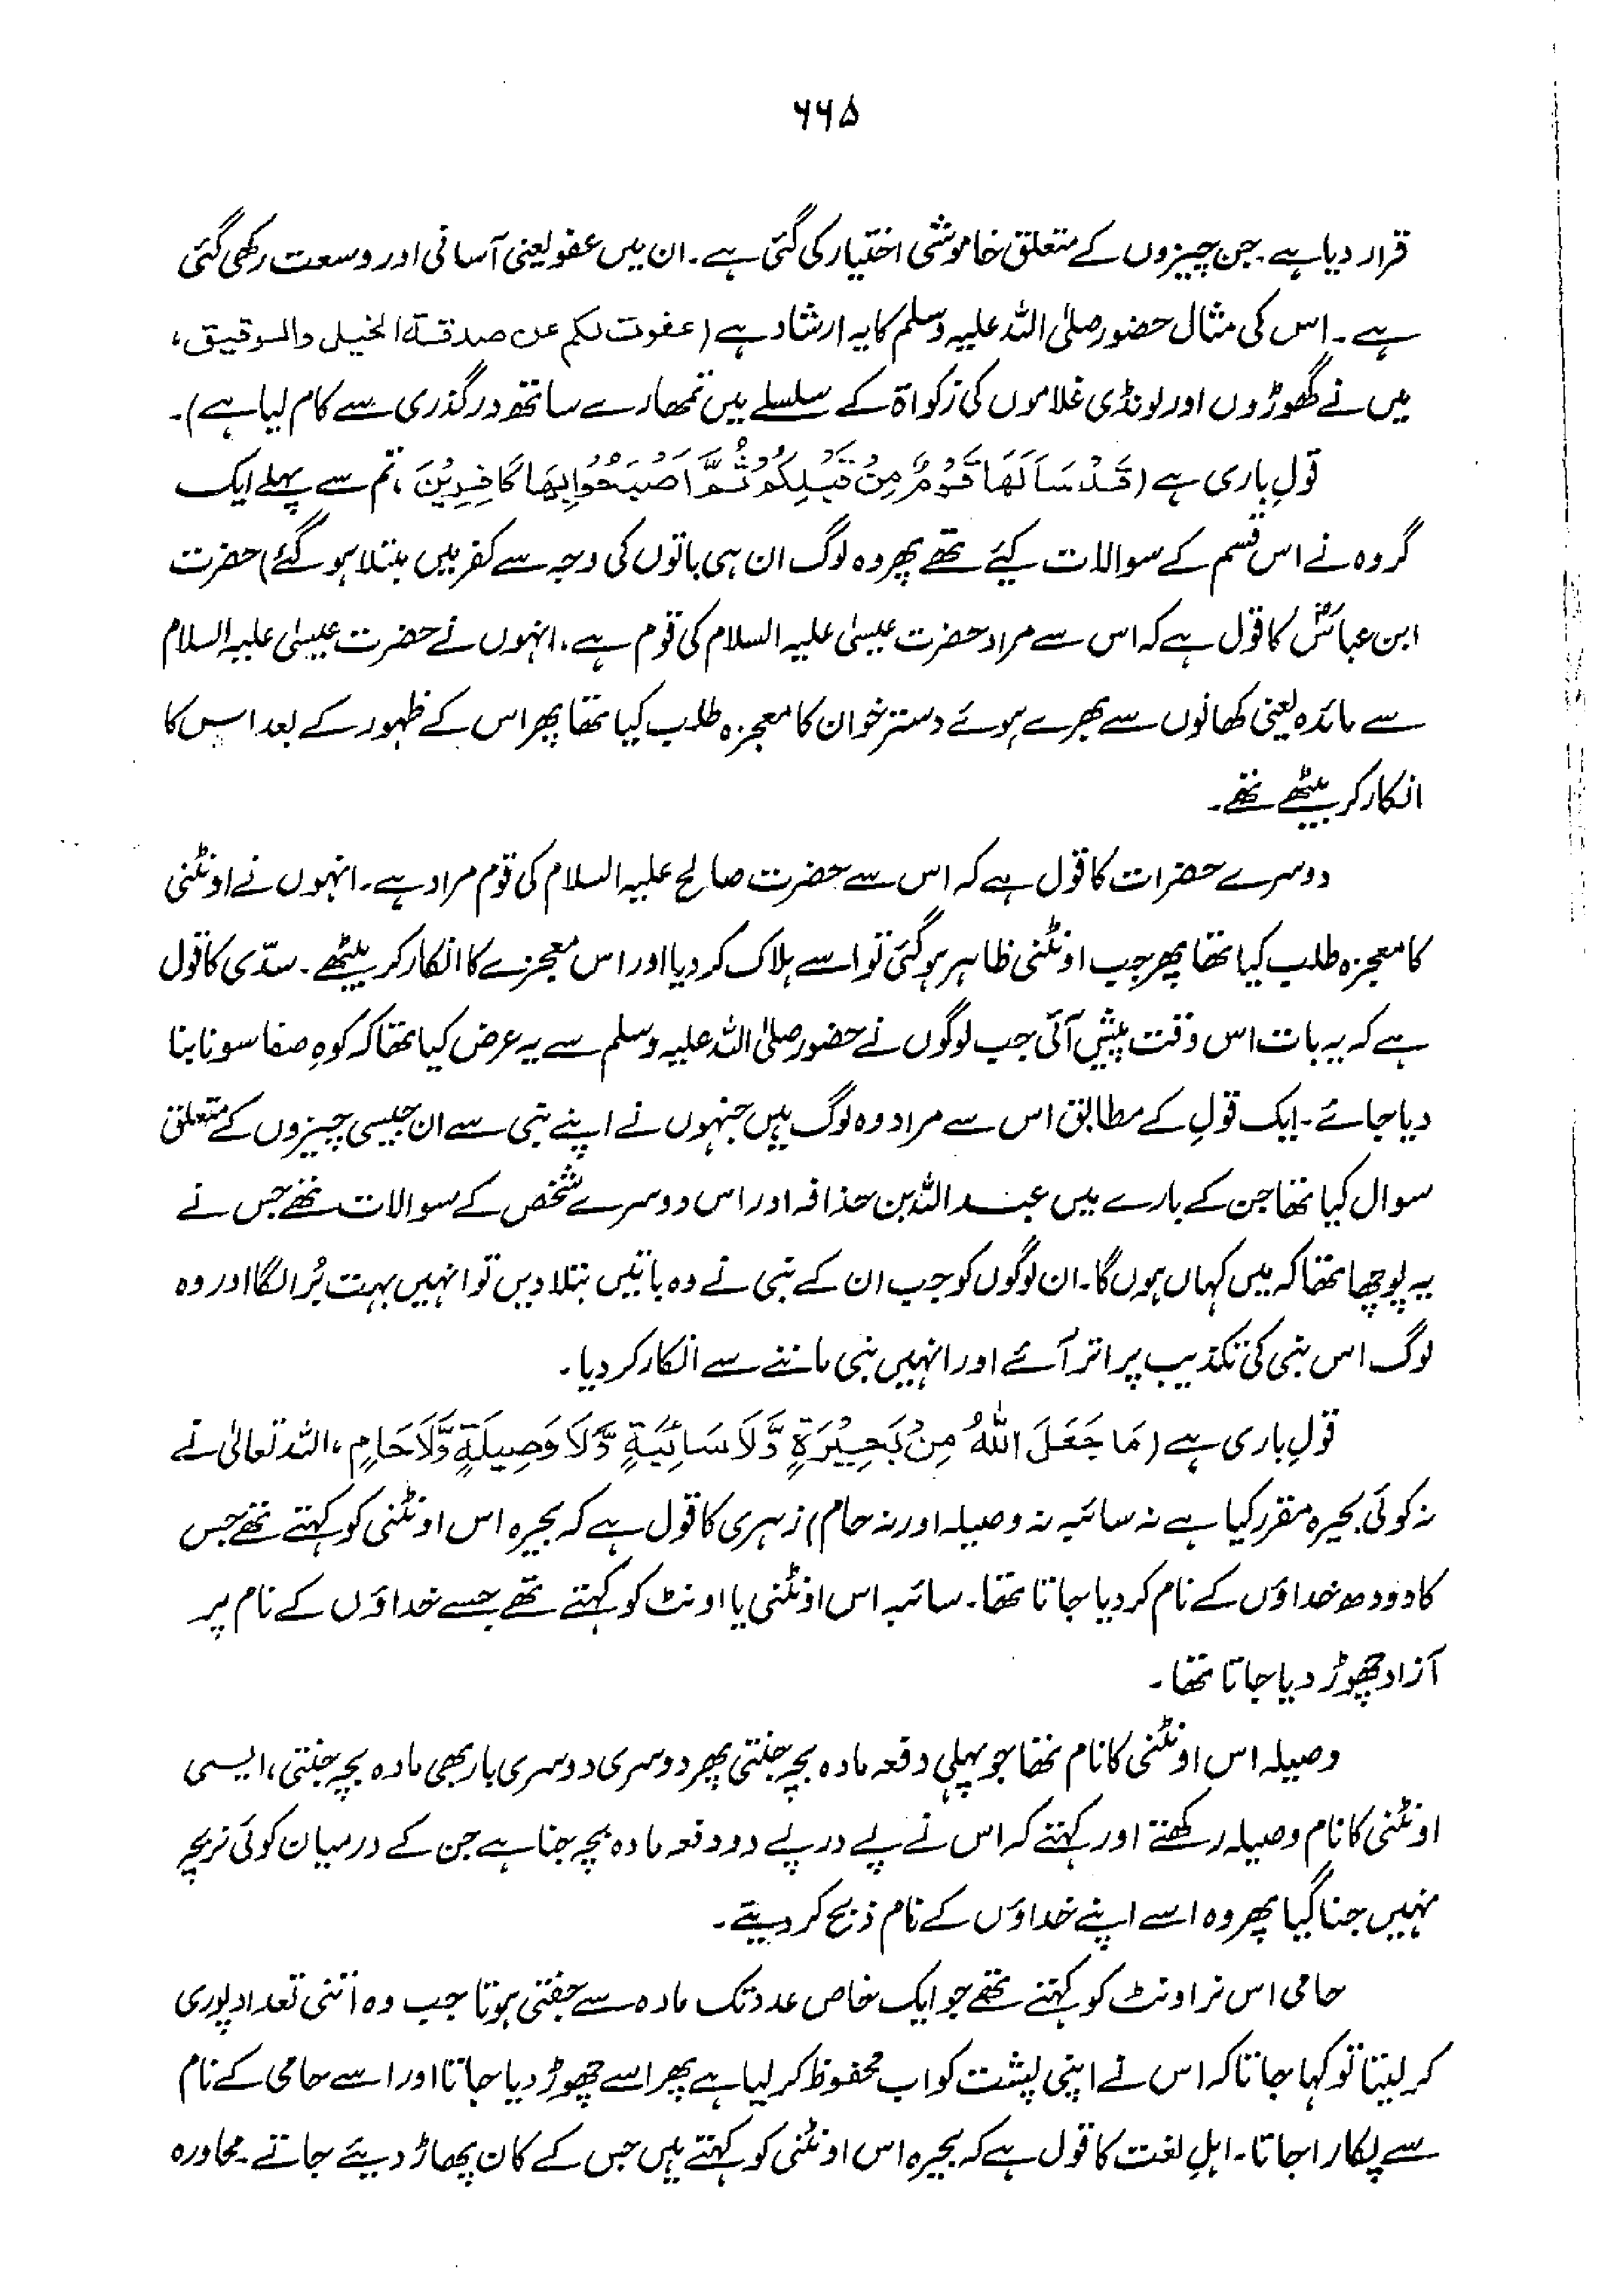 ۶۶۵
قرار دیا ہے۔ جن چیزوں کے متعلق خاموشی اختیار کی گئی ہے۔ ان میں عفو یعنی آسانی اور وسعت رکھی گئی
ہے۔ اس کی مثال حضور صلی اللہ علیہ وسلم کا یہ ارشاد ہے (عفوت لکم عن صدقۃ الخیل والرقیق،
میں نے گھوڑوں اور لونڈی غلاموں کی زکوٰۃ کے سلسلے میں تمھارے ساتھ درگذری سے کام لیا ہے)۔
قولِ باری ہے (قَدْ سَاَلَھَا قَوْمٌ مِنْ قَبْلِکُمْ ثُمَّ اَصْبَحُوْا بِھَا کَافِرِیْنَ، تم سے پہلے ایک
گروہ نے اس قسم کے سوالات کیئے تھے پھر وہ لوگ ان ہی باتوں کی وجہ سے کفر میں مبتلا ہو گئے) حضرت
ابن عباسؓ کا قول ہے کہ اس سے مراد حضرت عیسیٰ علیہ السلام کی قوم ہے۔ انہوں نے حضرت عیسیٰ علیہ السلام
سے مائدہ یعنی کھانوں سے بھرے ہوئے دسترخوان کا معجزہ طلب کیا تھا پھر اس کے ظہور کے بعد اس کا
انکار کر بیٹھے تھے۔
دوسرے حضرات کا قول ہے کہ اس سے حضرت صالح علیہ السلام کی قوم مراد ہے۔ انہوں نے اونٹنی
کا معجزہ طلب کیا تھا پھر جب اونٹنی ظاہر ہو گئی تو اسے ہلاک کر دیا اور اس معجزے کا انکار کر بیٹھے۔ سدّی کا قول
ہے کہ یہ بات اس وقت پیش آئی جب لوگوں نے حضور صلی اللہ علیہ وسلم سے یہ عرض کیا تھا کہ کوہِ صفا سونا بنا
دیا جائے۔ ایک قول کے مطابق اس سے مراد وہ لوگ ہیں جنہوں نے اپنے نبی سے ان جیسی چیزوں کے متعلق
سوال کیا تھا جن کے بارے میں عبد اللہ بن حذافہ اور اس دوسرے شخص کے سوالات تھے جس نے
یہ پوچھا تھا کہ میں کہاں ہوں گا۔ ان لوگوں کو جب ان کے نبی نے وہ باتیں بتلا دیں تو انہیں بہت بُرا لگا اور وہ
لوگ اس نبی کی تکذیب پر اتر آئے اور انہیں نبی ماننے سے انکار کر دیا۔
قولِ باری ہے (مَا جَعَلَ اللّٰہُ مِنْ بَحِیْرَۃٍ وَّلَا سَائِبَۃٍ وَّلَا وَصِیلَۃٍ وَّلَا حَامٍ، اللہ تعالیٰ نے
نہ کوئی بحیرہ مقرر کیا ہے نہ سائبہ نہ وصیلہ اور نہ حام) زہری کا قول ہے کہ بحیرہ اس اونٹنی کو کہتے تھے جس
کا دودھ خداؤں کے نام کر دیا جاتا تھا۔ سائبہ اس اونٹنی یا اونٹ کو کہتے تھے جسے خداؤں کے نام پر
آزاد چھوڑ دیا جاتا تھا۔
وصیلہ اس اونٹنی کا نام تھا جو پہلی دفعہ مادہ بچہ جنتی پھر دوسری دوسری بار بھی مادہ بچہ جنتی، ایسی
اونٹنی کا نام وصیلہ رکھتے اور کہتے کہ اس نے پے در پے دو دفعہ مادہ بچہ جنا ہے جن کے درمیان کوئی نر بچہ
نہیں جنا گیا پھر وہ اسے اپنے خداؤں کے نام ذبح کر دیتے۔
حامی اس نر اونٹ کو کہتے تھے جو ایک خاص عدد تک مادہ سے جفتی ہوتا جب وہ اتنی تعداد پوری
کر لیتا تو کہا جاتا کہ اس نے اپنی پشت کو اب محفوظ کر لیا ہے پھر اسے چھوڑ دیا جاتا اور اسے حامی کے نام
سے پکارا جاتا۔ اہلِ لغت کا قول ہے کہ بحیرہ اس اونٹنی کو کہتے ہیں جس کے کان پھاڑ دیئے جاتے۔ محاورہ